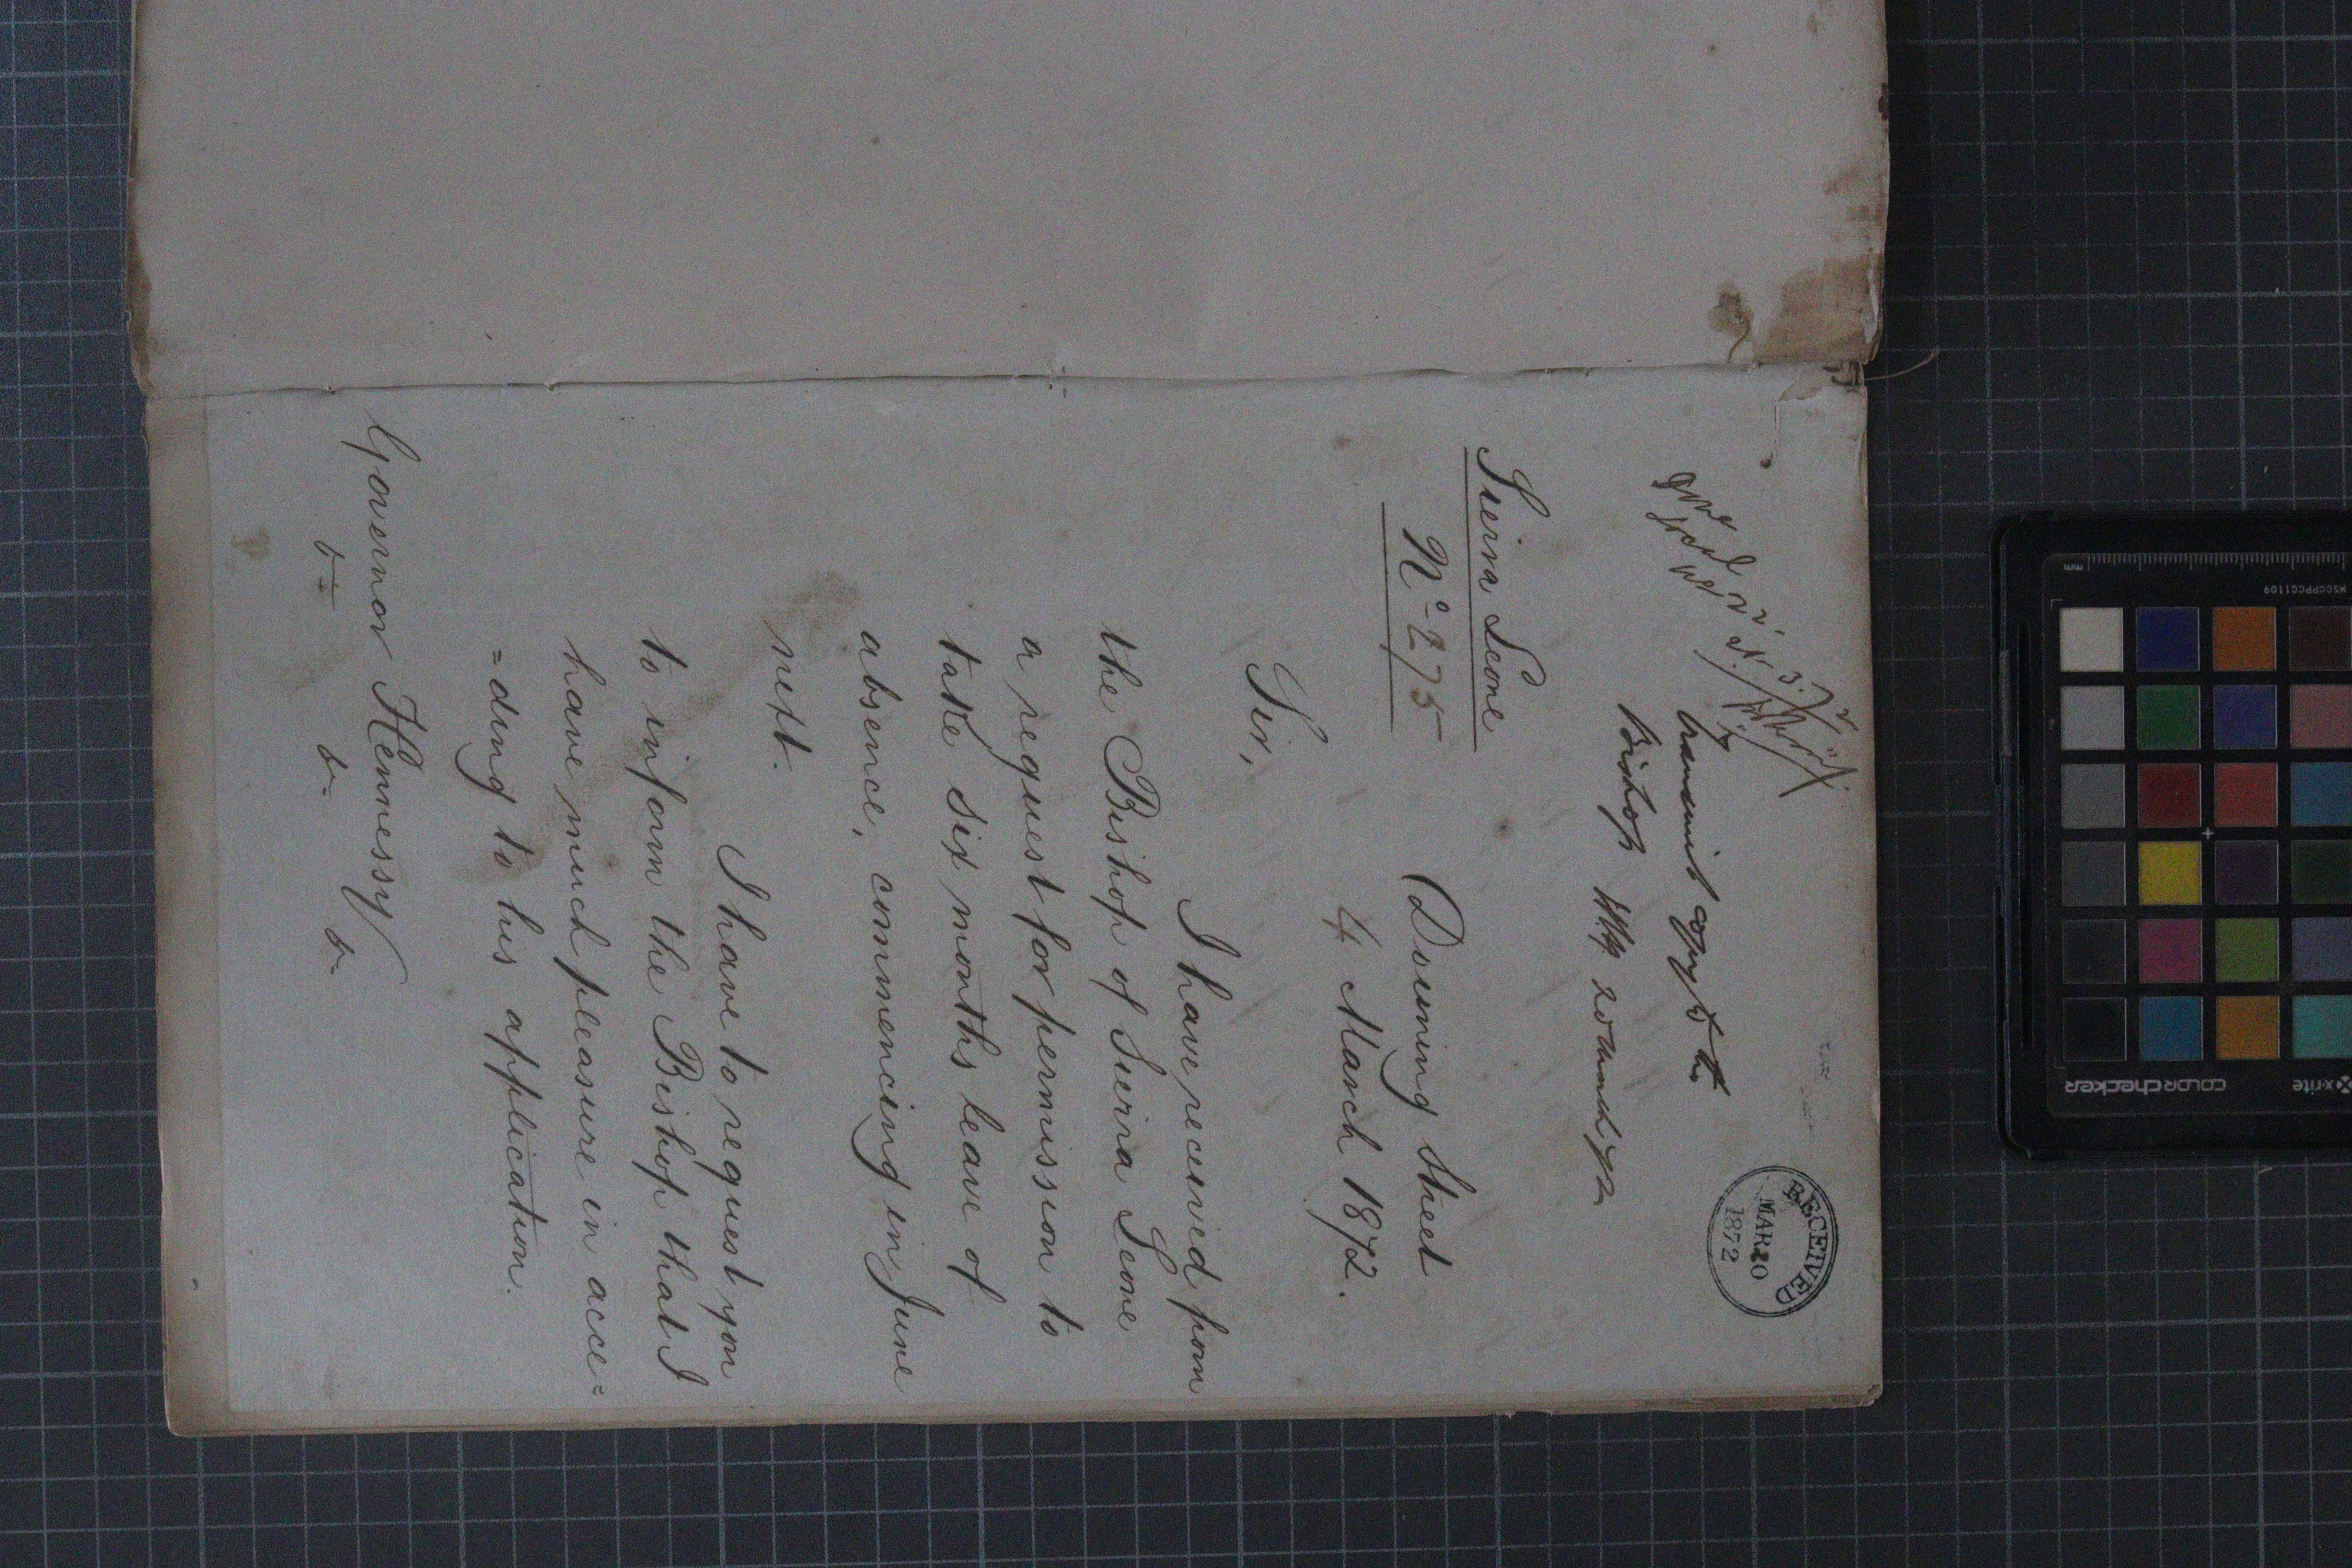 RECEIVED
MAR 20
1872
transmit copy to the
Bishop 20 March 72
Sierra Leone
No 275
Downing Street
4 March 1872.
Sir,
I have received from
the Bishop of Sierra Leone
a request for permission to
take six months leave of
absence, commencing in June
next.
I have to request you
to inform the Bishop that I
have much pleasure in acce=
=ding to his application.
Governor Hennessy
mm
MSCCPPCC1109
x-rite
colorchecker